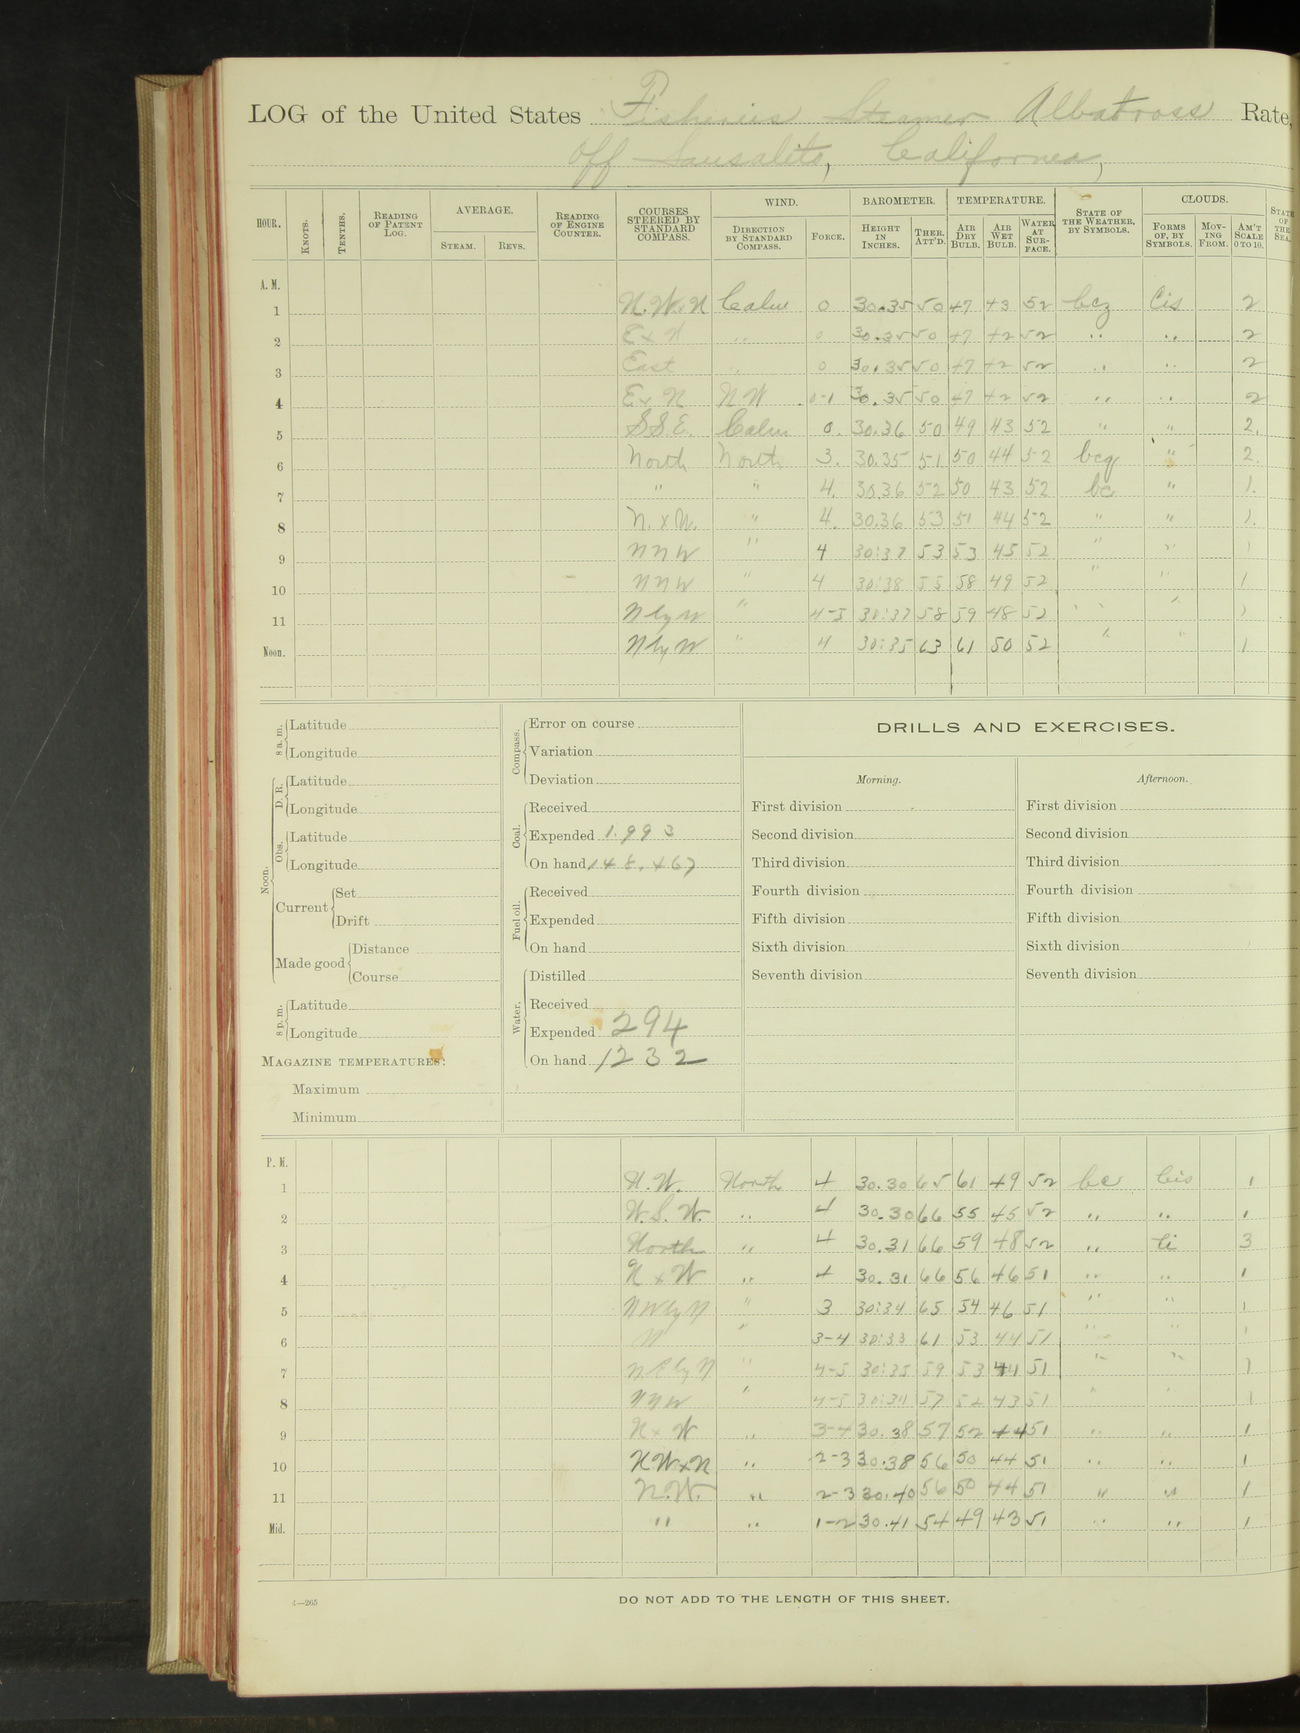 LOG of the United States Fisheries Steamer Albatross Rate,
off Sausalito, California,
HOUR. KNOTS. TENTHS. READING OF PATENT LOG. AVERAGE. STEAM. REVS. READING OF ENGINE COUNTER. COURSES STEERED BY STANDARD COMPASS. WIND. DIRECTION BY STANDARD COMPASS. FORCE. BAROMETER. HEIGHT IN INCHES. THER. ATT'D. TEMPERATURE. AIR DRY BULB. AIR WET BULB. WATER AT SUR-FACE. STATE OF THE WEATHER, BY SYMBOLS. CLOUDS. FORMS OF, BY SYMBOLS. MOV-ING FROM. AM'T SCALE 0 TO 10. STATE OF THE SEA.
A. M.
1 N.W.xN Calm 0 30.35 50 47 43 52 bcz Cis 2
2 ExN " 0 30.35 50 47 42 52 " " 2
3 East " 0 30.35 50 47 42 52 " " 2
4 ExN NW 0-1 30.35 50 47 42 52 " " 2
5 SSE. Calm 0. 30.36 50 49 43 52 " " 2.
6 North North 3. 30.35 51 50 44 52 bcq " 2.
7 " " 4. 30.36 52 50 43 52 bc " 1.
8 N.xW. " 4. 30.36 53 51 44 52 " " 1.
9 NNW " 4 30:37 53 53 45 52 " " 1
10 NNW " 4 30:38 55 58 49 52 " " 1
11 N by W " 4-5 30:37 58 59 48 52 " " 1
Noon. N by W " 4 30:35 63 61 50 52 " " 1
8 a. m. Latitude
Longitude
Noon. D. R. Latitude
Longitude
Obs. Latitude
Longitude
Current Set
Drift
Made good Distance
Course
8 p. m. Latitude
Longitude
MAGAZINE TEMPERATURES:
Maximum
Minimum
Compass. Error on course
Variation
Deviation
Coal. Received
Expended 1.993
On hand 148.467
Fuel oil. Received
Expended
On hand
Water. Distilled
Received
Expended 294
On hand 1232
DRILLS AND EXERCISES.
Morning. Afternoon.
First division First division
Second division Second division
Third division Third division
Fourth division Fourth division
Fifth division Fifth division
Sixth division Sixth division
Seventh division Seventh division
P. M.
1 N.W. North 4 30.30 65 61 49 52 bc Cis 1
2 W.S.W. " 4 30.30 66 55 45 52 " " 1
3 North " 4 30.31 66 59 48 52 " Ci 3
4 NxW " 4 30.31 66 56 46 51 " " 1
5 NW by N " 3 30:34 65 54 46 51 " " 1
6 N " 3-4 30:33 61 53 44 51 " " 1
7 NE by N " 4-5 30:35 59 53 44 51 " " 1
8 NNW " 4-5 30:34 57 52 43 51 " " 1
9 NxW " 3-4 30.38 57 52 44 51 " " 1
10 NWxN " 2-3 30.38 56 50 44 51 " " 1
11 N.W. " 2-3 30.40 56 50 44 51 " " 1
Mid. " " 1-2 30.41 54 49 43 51 " " 1
DO NOT ADD TO THE LENGTH OF THIS SHEET.